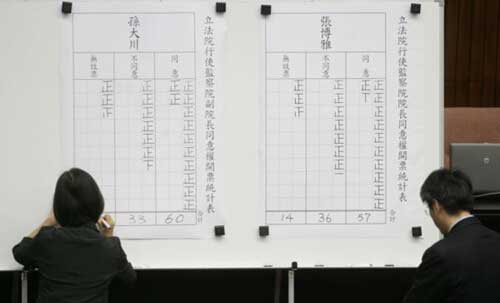 立法院行使監察院院長同意權開票統計表
張博雅
同意
正正正正正正正正正正
正丅
合計
57
不同意
正正正正正正正一
36
無效票
14
立法院行使監察院副院長同意權開票統計表
孫大川
同意
正正正正正正正正正正
正正
合計
60
不同意
正正正正正正下
33
無效票